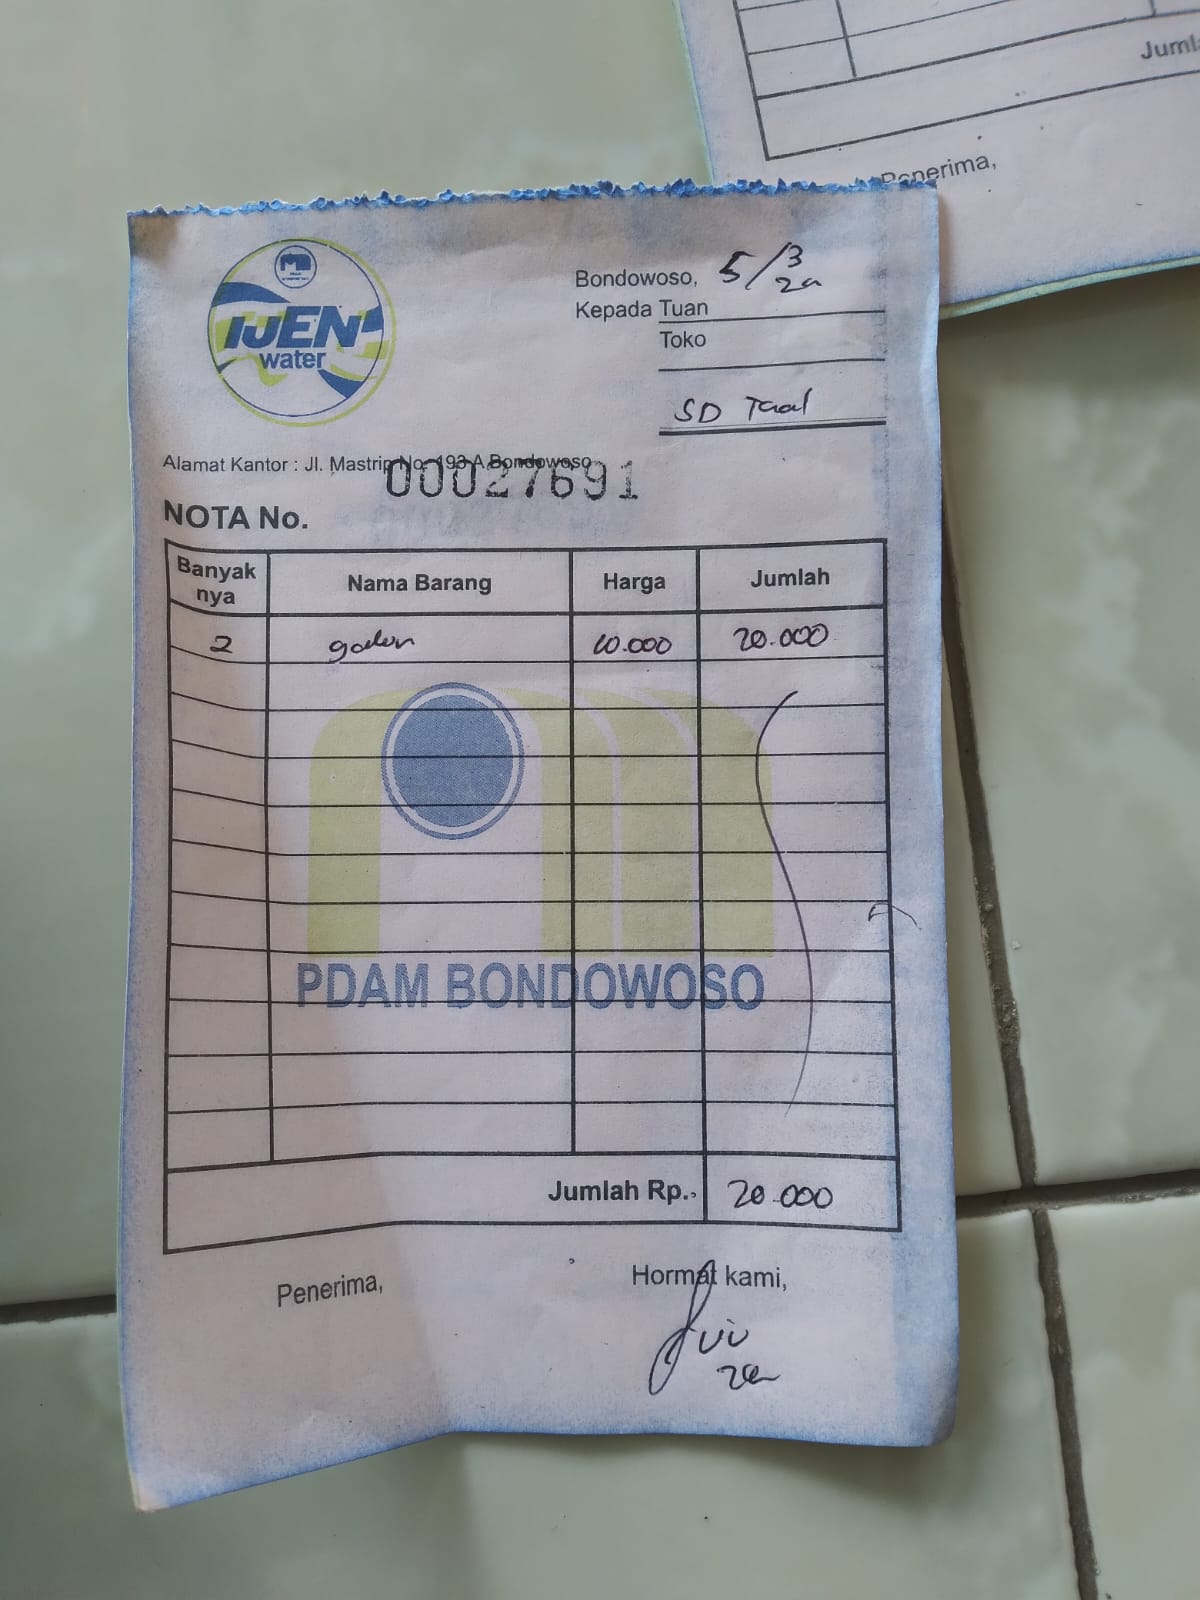 Jumla
Penerima,
IJEN
water
Bondowoso, 5/3
Kepada Tuan
Toko
SD Taal
Alamat Kantor : Jl. Mastrip No. 193 A Bondowoso
00027691
NOTA No.
Banyak nya Nama Barang Harga Jumlah
2 galon 10.000 20.000
PDAM BONDOWOSO
Jumlah Rp. 20.000
Penerima, Hormat kami,